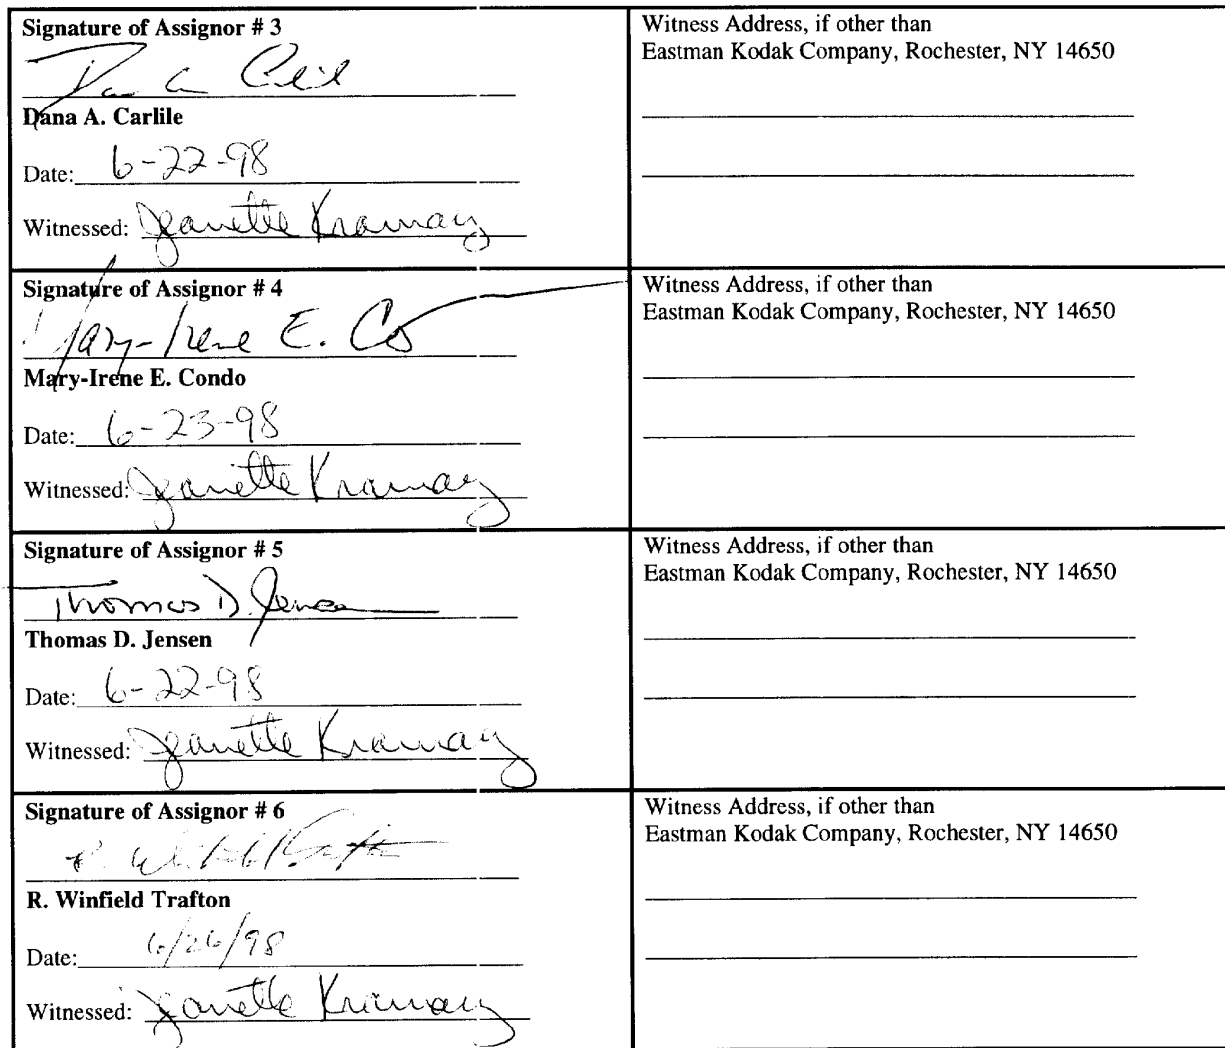 Signature of Assignor # 3
Dana A. Carlile
Date: 6-22-98
Witnessed: Jeanette
Witness Address, if other than
Eastman Kodak Company, Rochester, NY 14650
Signature of Assignor # 4
Mary-Irene E.
Mary-Irene E. Condo
Date: 6-23-98
Witnessed: Jeanette
Witness Address, if other than
Eastman Kodak Company, Rochester, NY 14650
Signature of Assignor # 5
Thomas D. Jensen
Thomas D. Jensen
Date: 6-22-98
Witnessed: Jeanette
Witness Address, if other than
Eastman Kodak Company, Rochester, NY 14650
Signature of Assignor # 6
R. Winfield Trafton
Date: 6/26/98
Witnessed: Jeanette
Witness Address, if other than
Eastman Kodak Company, Rochester, NY 14650